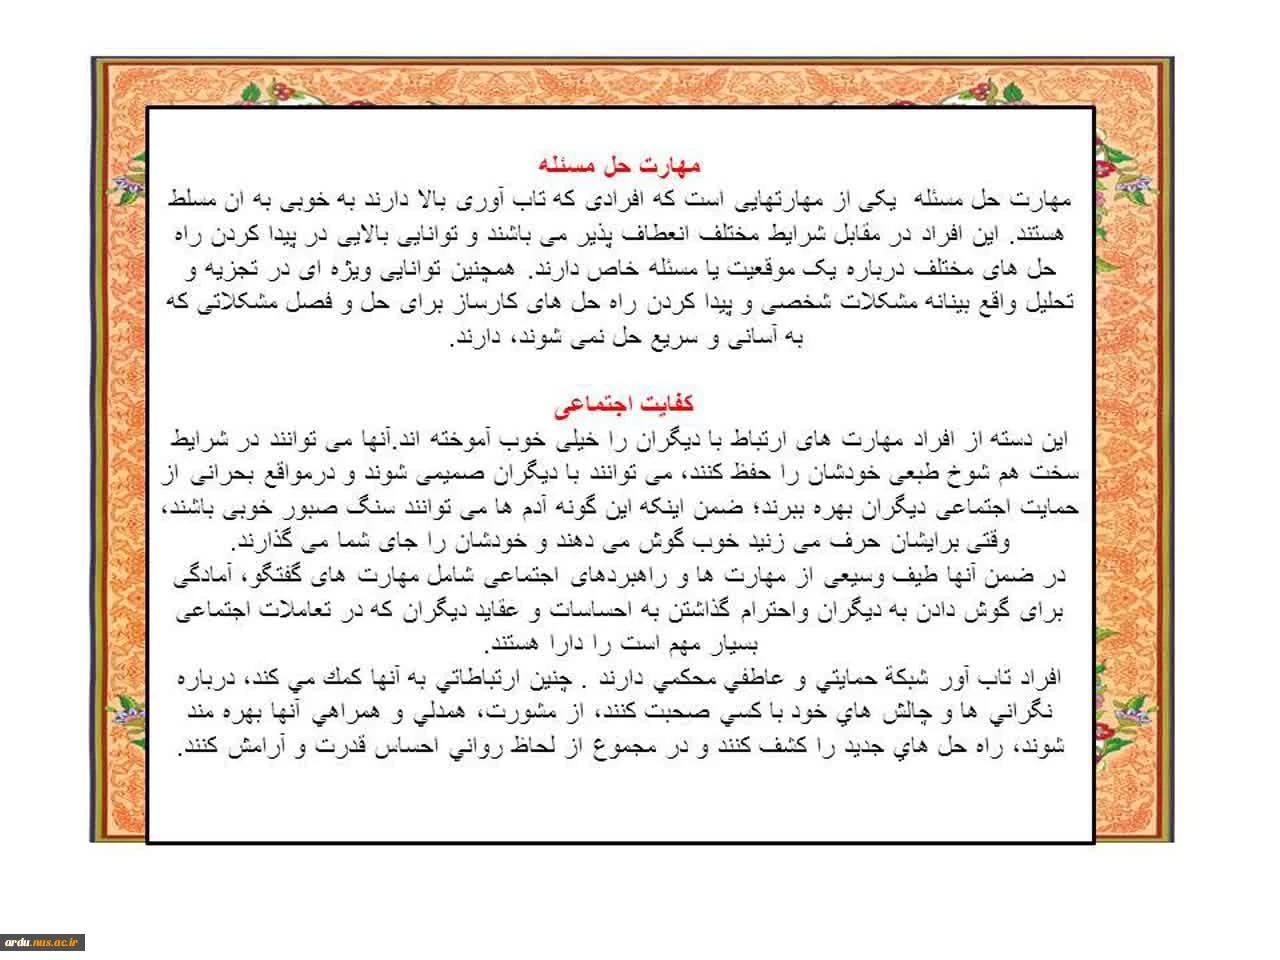 مهارت حل مسئله
مهارت حل مسئله  یکی از مهارتهایی است که افرادی که تاب آوری بالا دارند به خوبی به ان مسلط
هستند. این افراد در مقابل شرایط مختلف انعطاف پذیر می باشند و توانایی بالایی در پیدا کردن راه
حل های مختلف درباره یک موقعیت یا مسئله خاص دارند. همچنین توانایی ویژه ای در تجزیه و
تحلیل واقع بینانه مشکلات شخصی و پیدا کردن راه حل های کارساز برای حل و فصل مشکلاتی که
به آسانی و سریع حل نمی شوند، دارند.
کفایت اجتماعی
این دسته از افراد مهارت های ارتباط با دیگران را خیلی خوب آموخته اند.آنها می توانند در شرایط
سخت هم شوخ طبعی خودشان را حفظ کنند، می توانند با دیگران صمیمی شوند و درمواقع بحرانی از
حمایت اجتماعی دیگران بهره ببرند؛ ضمن اینکه این گونه آدم ها می توانند سنگ صبور خوبی باشند،
وقتی برایشان حرف می زنید خوب گوش می دهند و خودشان را جای شما می گذارند.
در ضمن آنها طیف وسیعی از مهارت ها و راهبردهای اجتماعی شامل مهارت های گفتگو، آمادگی
برای گوش دادن به دیگران واحترام گذاشتن به احساسات و عقاید دیگران که در تعاملات اجتماعی
بسیار مهم است را دارا هستند.
افراد تاب آور شبكة حمايتي و عاطفي محكمي دارند . چنين ارتباطاتي به آنها كمك مي كند، درباره
نگراني ها و چالش هاي خود با كسي صحبت كنند، از مشورت، همدلي و همراهي آنها بهره مند
شوند، راه حل هاي جديد را كشف كنند و در مجموع از لحاظ رواني احساس قدرت و آرامش كنند.
ardu.nus.ac.ir